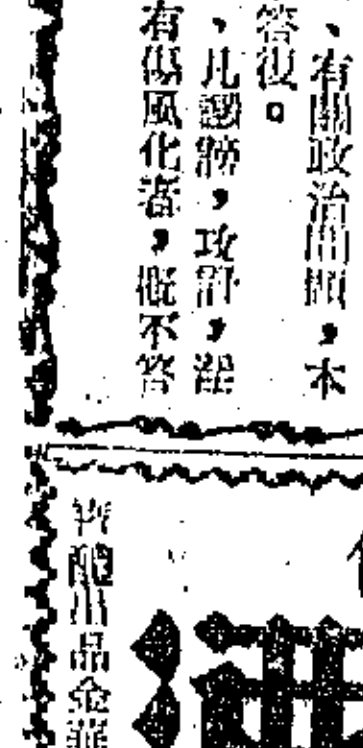 、有關政治問題，本
答復。
、凡謗，攻訐，
有傷風化者，概不答
出品金
油